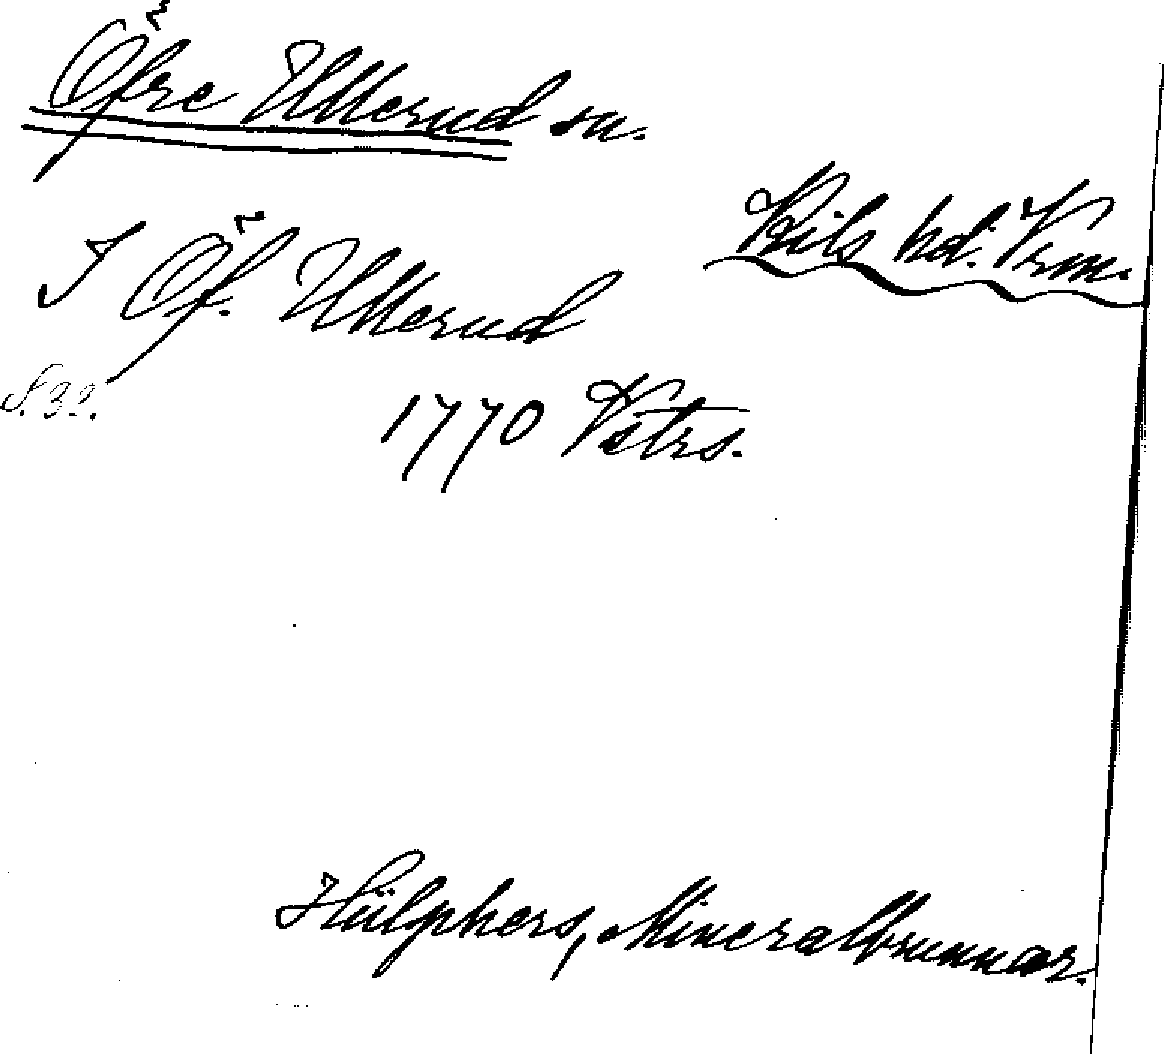 Öfre Ullerud sn.
Kils hd. Vrm.
I Öf. Ullerud
S. 32.
1770 Vstrs.
Hülphers, Mineralbrunnar.